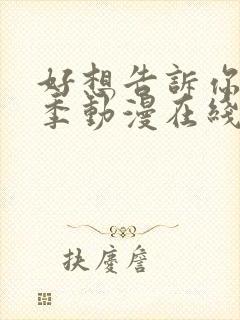 好想告訴你
季動漫在綫
扶慶詹